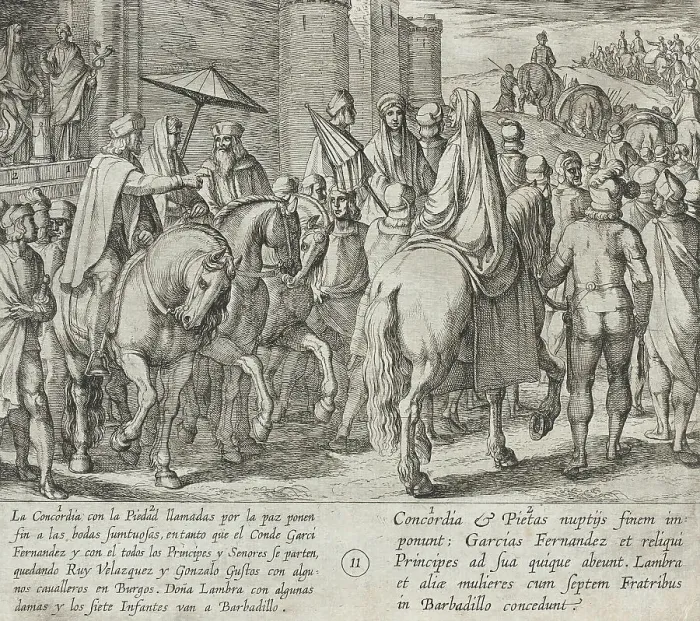 1 2
La Concordia con la Piedad llamadas por la paz ponen
fin a las bodas sumtuosas, entanto que el Conde Garci
Fernandez y con el todos los Principes y Senores se parten,
quedando Ruy Velazquez y Gonzalo Gustos con algu
nos cavalleros en Burgos. Doña Lambra con algunas
damas y los siete Infantes van a Barbadillo.
11
1 2
Concordia & Pietas nuptijs finem im-
ponunt; Garcias Fernandez et reliqui
Principes ad sua quique abeunt. Lambra
et aliæ mulieres cum septem Fratribus
in Barbadillo concedunt.